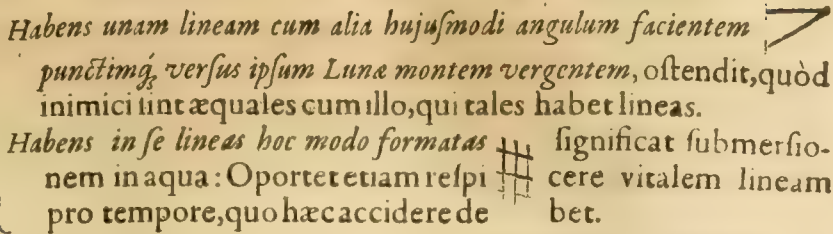 Habens unam lineam cum alia hujuſmodi angulum facientem
punctimq́; verſus ipſum Lunæ montem vergentem, oſtendit, quòd
inimici ſint æquales cum illo, qui tales habet lineas.
Habens in ſe lineas hoc modo formatas ſignificat ſubmerſio-
nem in aqua: Oportet etiam reſpi cere vitalem lineam
pro tempore, quo hæc accidere de bet.